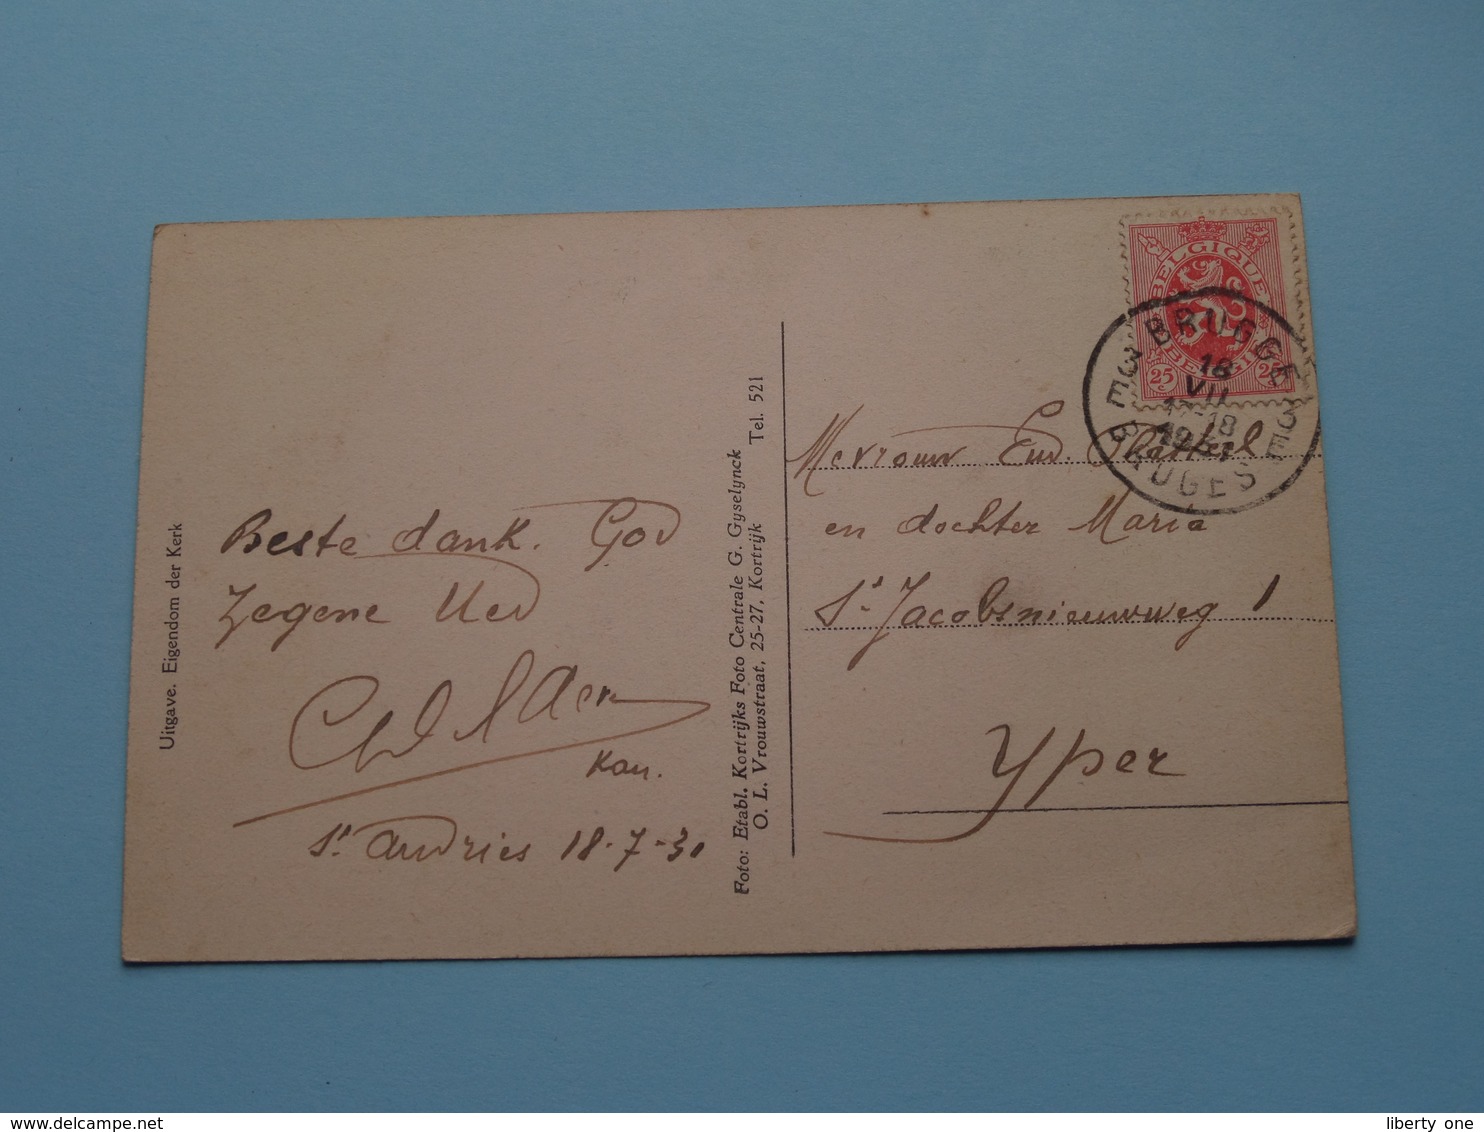 Uitgave. Eigendom der Kerk
Beste dank. God
Zegene Ued
Kan.
St. Andries 18-7-31
Foto: Etabl. Kortrijks Foto Centrale G. Gyselynck
O. L. Vrouwstraat, 25-27, Kortrijk Tel. 521
BELGIQUE
BELGIË
25c 25c
BRUGGE
3 3
E E
18
VII
17-18
1931
BRUGES
Mevrouw Em.
en dochter Maria
St. Jacobsnieuwweg 1
Yper
www.delcampe.net
liberty one